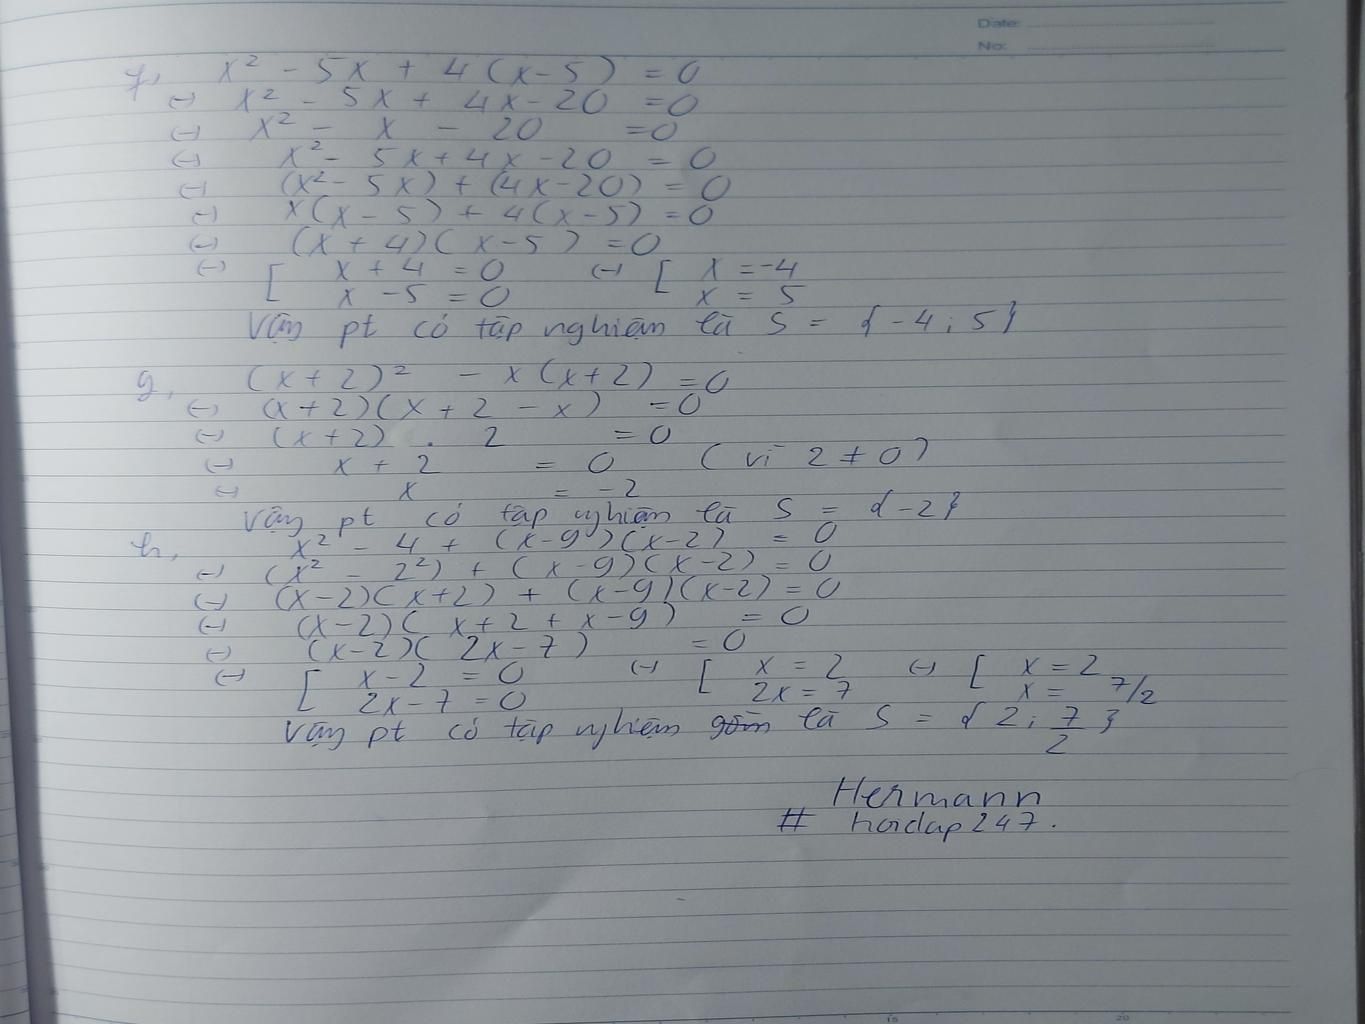 Date:
No:
f, x² - 5x + 4(x-5) = 0
(-) x² - 5x + 4x - 20 = 0
(-) x² - x - 20 = 0
(-) x² - 5x + 4x - 20 = 0
(-) (x² - 5x) + (4x - 20) = 0
(-) x(x-5) + 4(x-5) = 0
(-) (x+4)(x-5) = 0
(-) [ x + 4 = 0 (-) [ x = -4
x - 5 = 0 x = 5
Vậy pt có tập nghiệm là S = {-4; 5}
g, (x+2)² - x(x+2) = 0
(-) (x+2)(x+2-x) = 0
(-) (x+2) . 2 = 0
(-) x + 2 = 0 (vì 2 ≠ 0)
(-) x = -2
Vậy pt có tập nghiệm là S = {-2}
h, x² - 4 + (x-9)(x-2) = 0
(-) (x² - 2²) + (x-9)(x-2) = 0
(-) (x-2)(x+2) + (x-9)(x-2) = 0
(-) (x-2)(x+2+x-9) = 0
(-) (x-2)(2x-7) = 0
(-) [ x-2 = 0 (-) [ x = 2 (-) [ x = 2
2x-7 = 0 2x = 7 x = 7/2
Vậy pt có tập nghiệm gồm là S = {2; 7/2}
Hermann
# hoidap247.
15 20